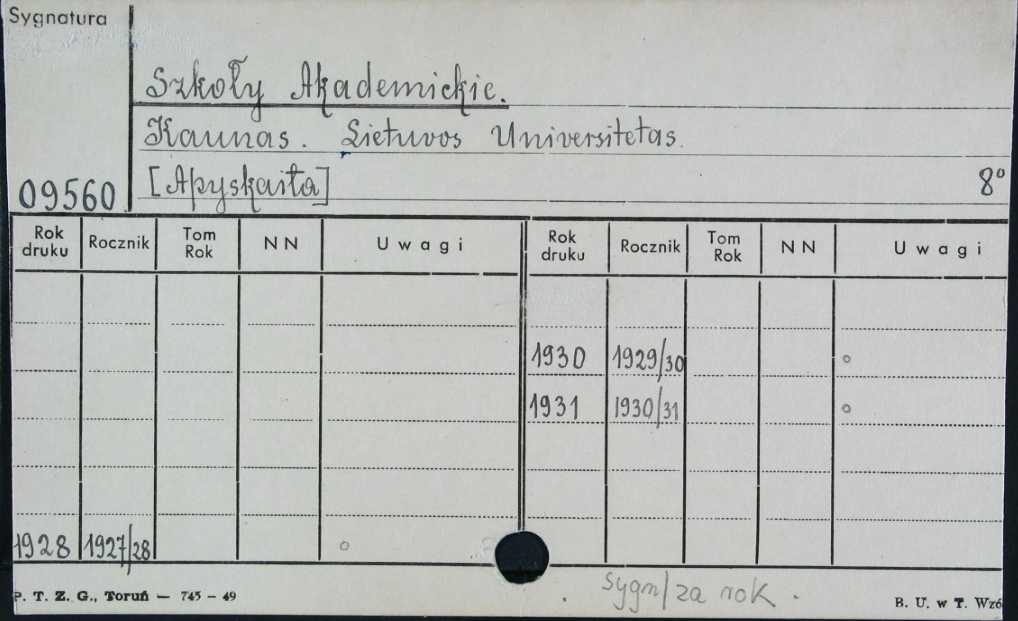 Sygnatura
Szkoły Akademickie.
Kaunas. Lietuvos Universitetas.
09560 [Apyskaita] 8°
Rok druku Rocznik Tom Rok NN Uwagi Rok druku Rocznik Tom Rok NN Uwagi
1930 1929/30 °
1931 1930/31 °
1928 1927/28 °
sygn/za rok.
P. T. Z. G., Toruń — 745 - 49 B. U. w T. Wzó